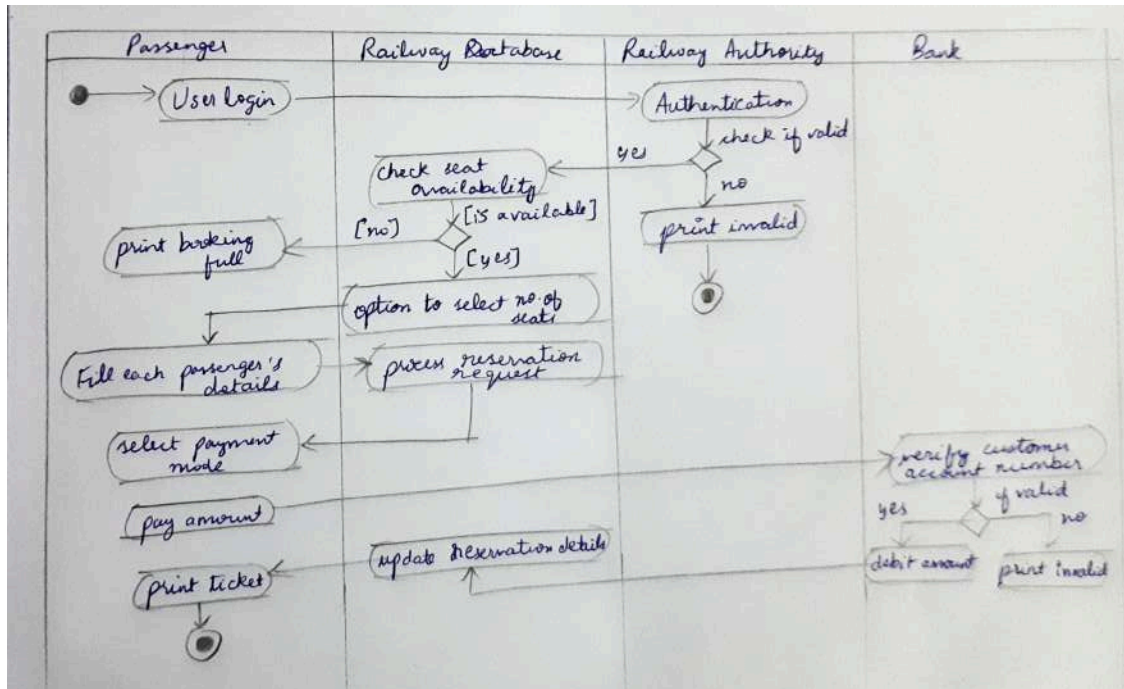 Passenger
Railway Database
Railway Authority
Bank
User login
Authentication
check if valid
yes
no
check seat
availability
[is available]
[no]
[yes]
print invalid
print booking
full
option to select no. of
seats
Fill each passenger's
details
process reservation
request
select payment
mode
verify customer
account number
if valid
yes
no
pay amount
update reservation details
debit amount
print invalid
print ticket